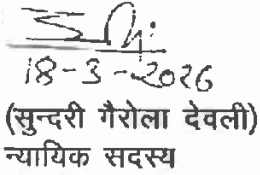 18-3-2026
(सुन्दरी गैरोला देवली)
न्यायिक सदस्य